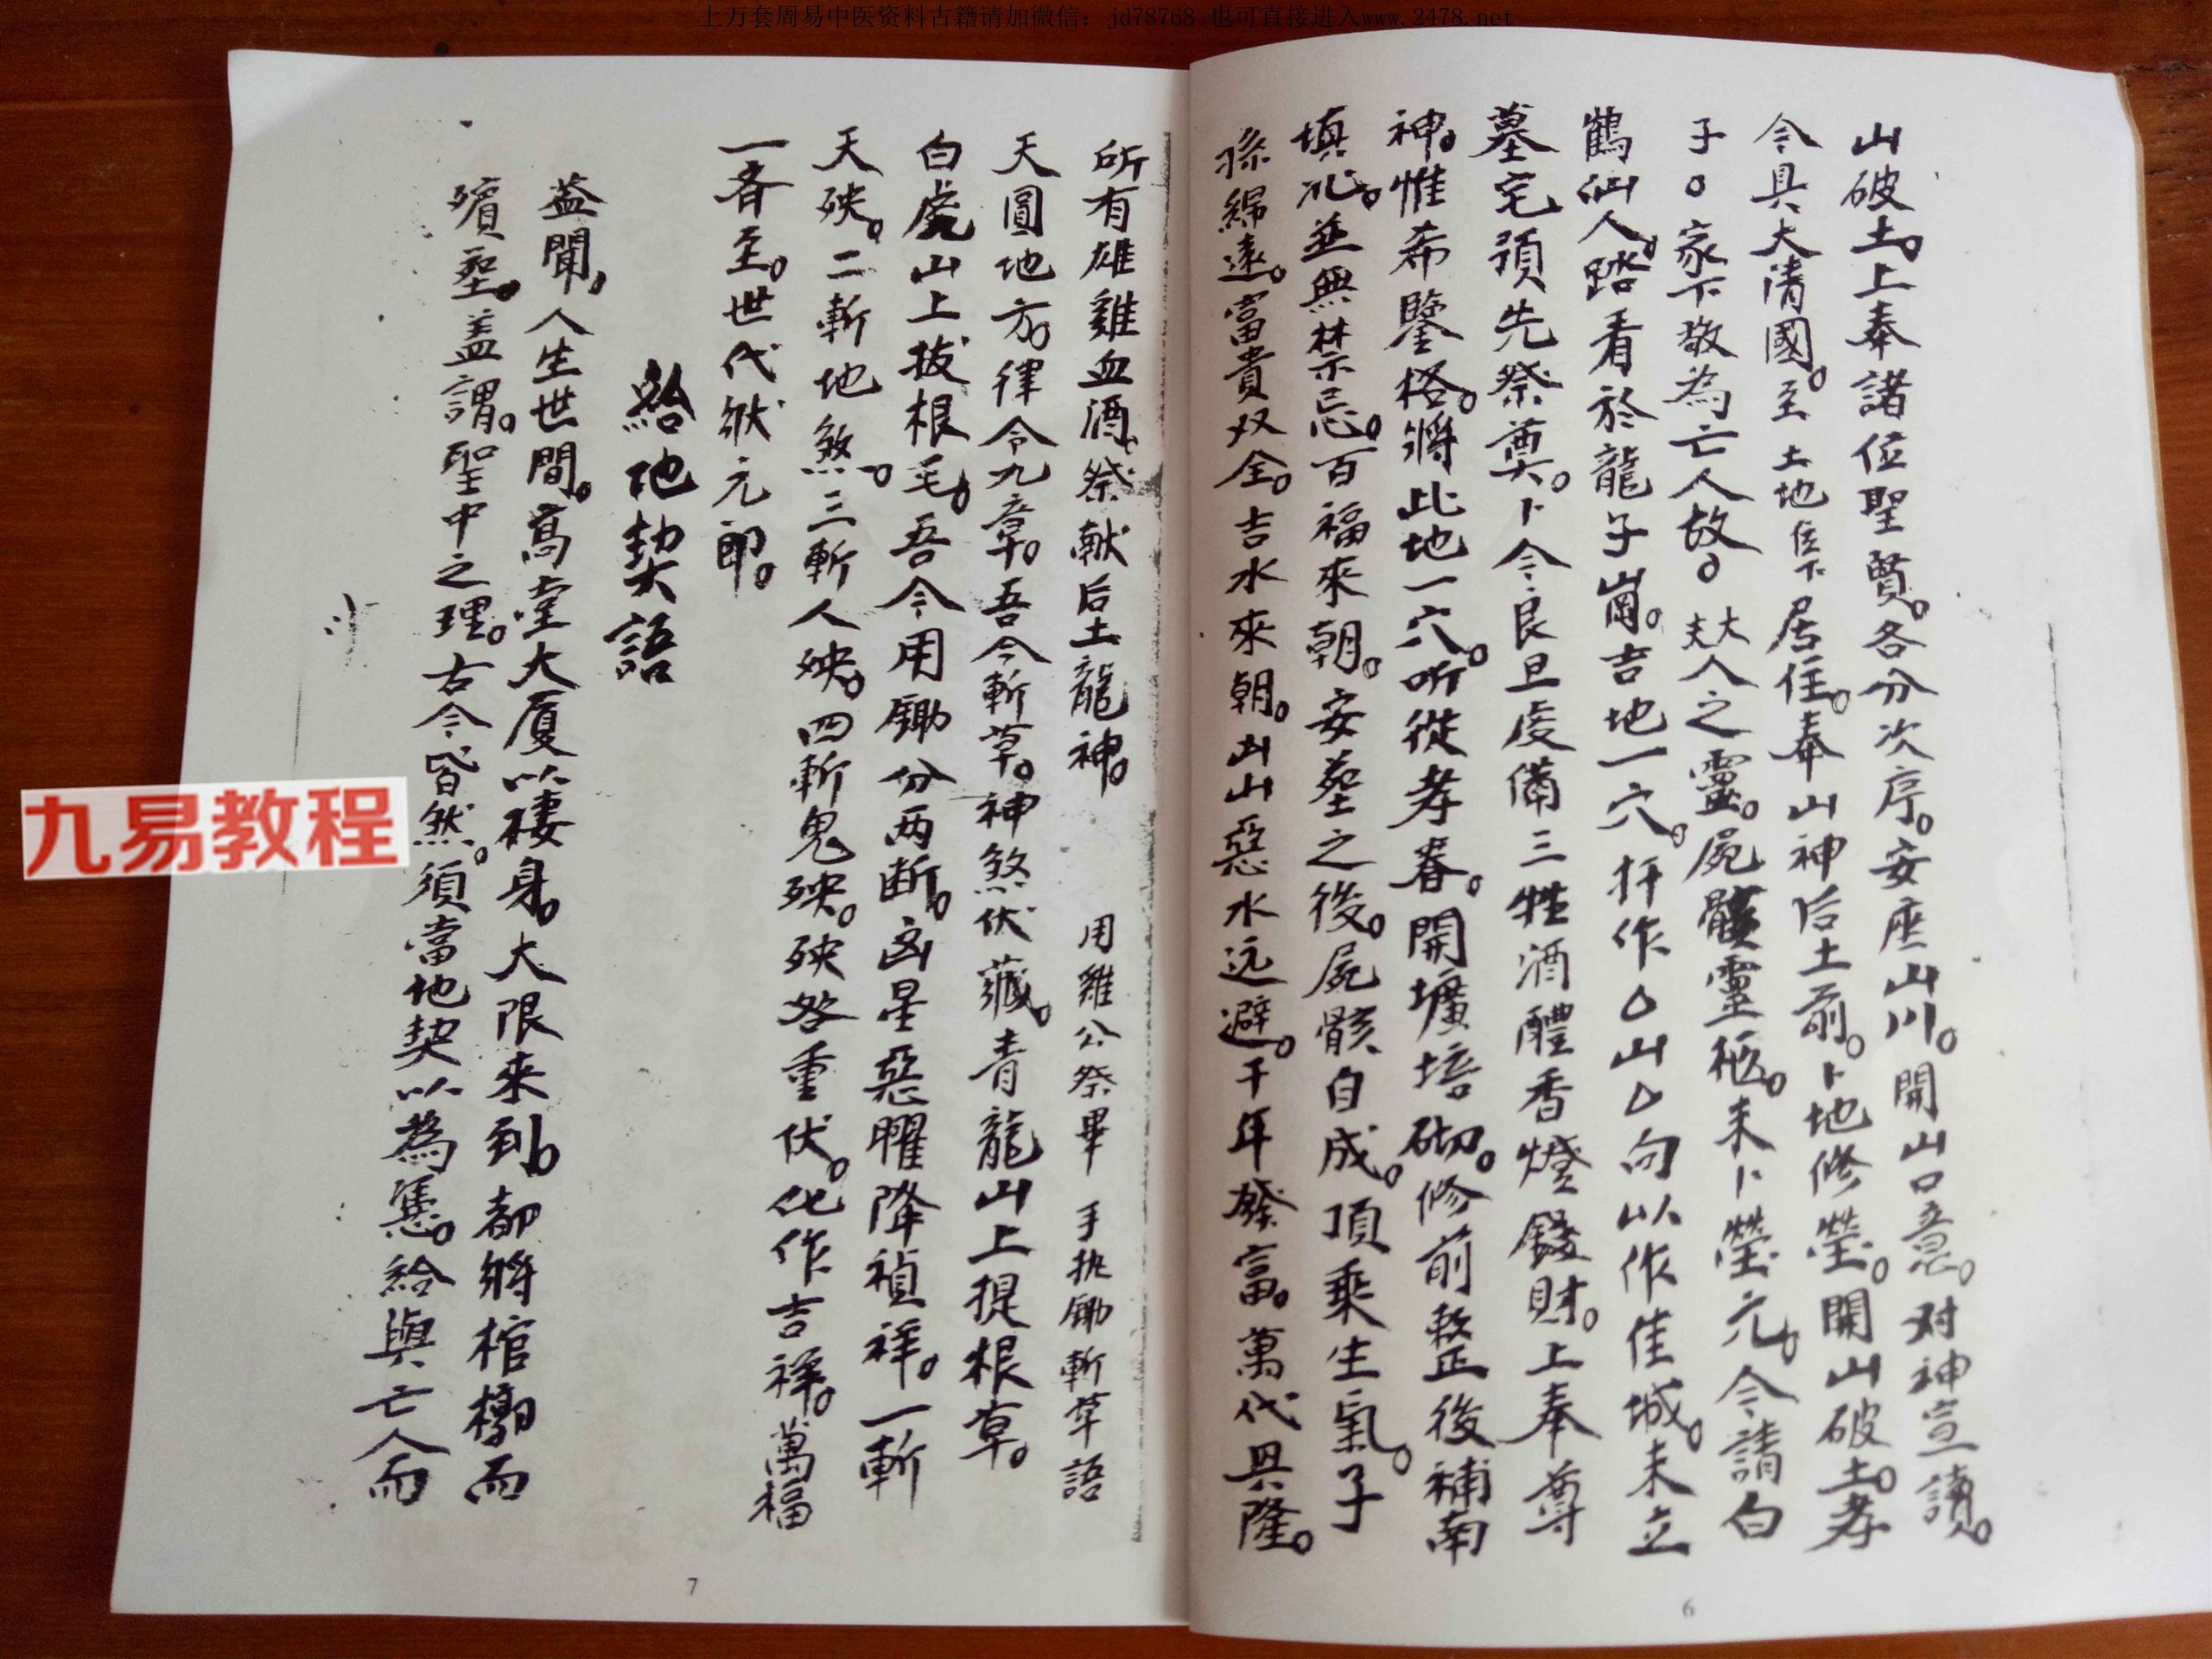 上万套周易中医资料古籍请加微信：jd78768 也可直接进入www.2478.net
山破土。上奉諸位聖賢。各分次序。安座山川。開山口意。对神宣讀。
今具大清國。至土地侱下居住。奉山神后土前。卜地修塋。開山破土。孝
子。家下敬為亡人故。大夫人之靈。屍骸靈柩。未卜塋元。今請白
鶴仙人。踏看於龍子崗。吉地一穴。扦作△山△向以作佳城。未立
墓宅預先祭奠。卜今良旦虔備三牲酒醴香燈錢財。上奉尊
神。惟希鑒格。將此地一穴。听從孝眷。開壙培砌。修前整後補南
填北。並無禁忌。百福來朝。安塟之後。屍骸自成。頂乘生氣。子
孫綿遠。富貴双全。吉水來朝。凶山惡水远避。千年發富。萬代興隆。
6
所有雄雞血酒。祭献后土龍神。 用雞公祭畢 手执锄斬草語
天圓地方。律令九章。吾今斬草。神煞伏藏。青龍山上提根草。
白虎山上拔根毛。吾今用锄分两断。凶星惡曜降禎祥。一斬
天殃。二斬地煞。三斬人殃。四斬鬼殃。殃咎重伏。化作吉祥。萬福
一齐至。世代狀元郎。
給地契語
蓋聞。人生世間。高堂大厦以棲身。大限來到。都將棺槨而
殯塟。盖謂。聖中之理。古今皆然。須當地契以為憑。給與亡人而
7
九易教程